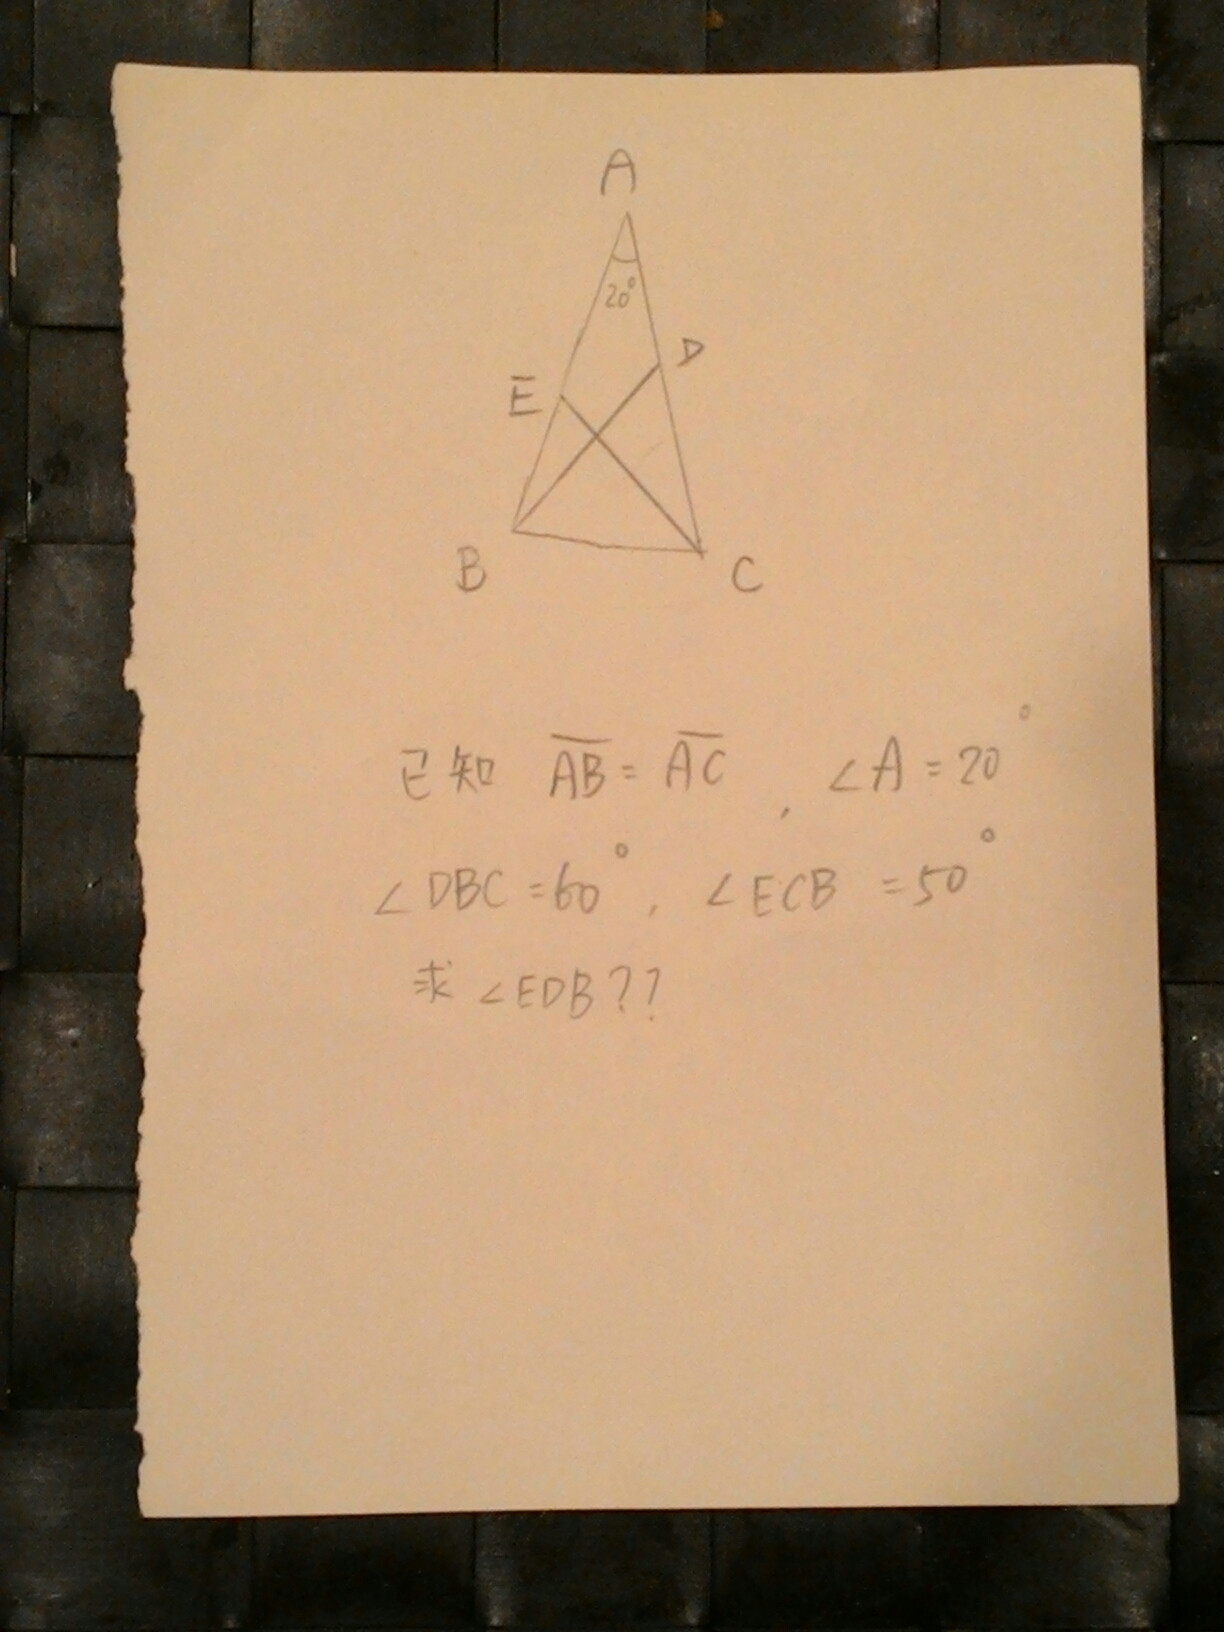 A
20°
D
E
B
C
已知 AB = AC , ∠A = 20°
∠DBC = 60° , ∠ECB = 50°
求 ∠EDB??